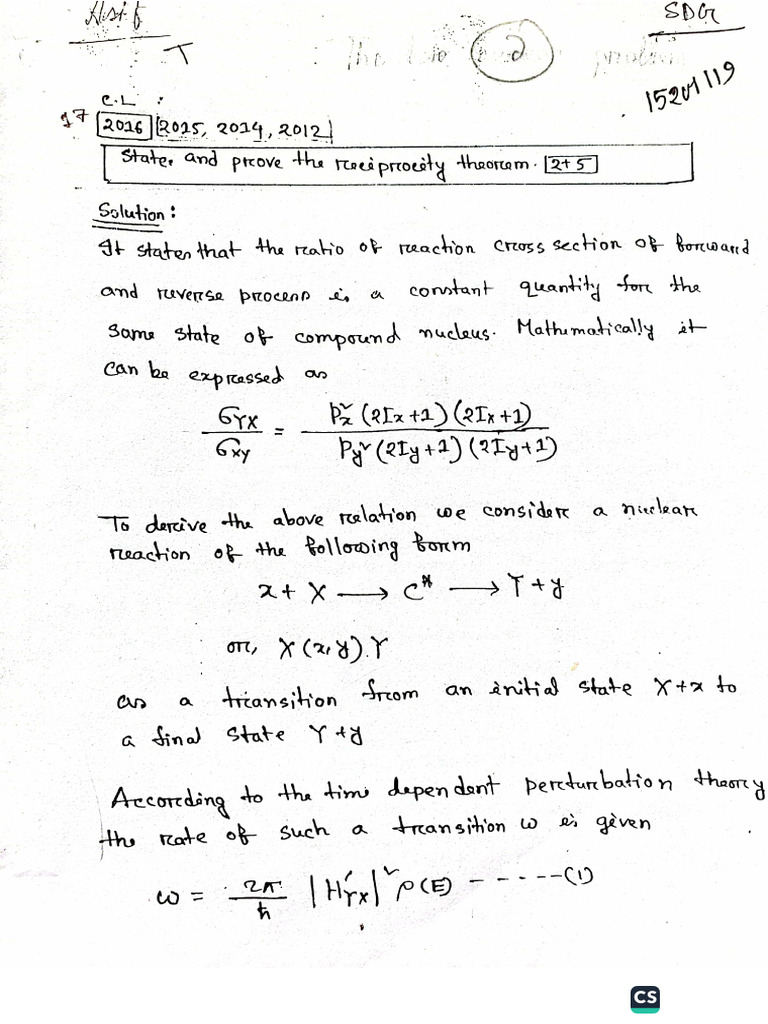 Asif
SDG
T
2
15201119
C.L :
17 2016 2015, 2014, 2012
State and prove the reciprocity theorem. 2+5
Solution:
It states that the ratio of reaction cross section of forward
and reverse process is a constant quantity for the
same state of compound nucleus. Mathematically it
can be expressed as
σYX / σXY = Px² (2Ix+1) (2IX+1) / Py² (2Iy+1) (2IY+1)
To derive the above relation we consider a nuclear
reaction of the following form
x + X ⟶ C* ⟶ Y + y
or, X (x, y) Y
as a transition from an initial state X+x to
a final state Y+y
According to the time dependent perturbation theory
the rate of such a transition ω is given
ω = 2π/ħ |H′YX|² ρ(E) ------(1)
CS